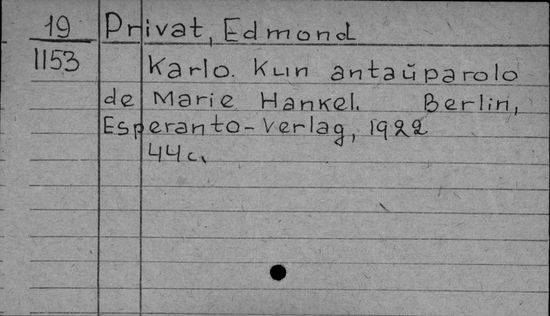 19 Privat, Edmond
1153 Karlo. Kun antaŭparolo
de Marie Hankel. Berlin,
Esperanto-Verlag, 1922
44 c.